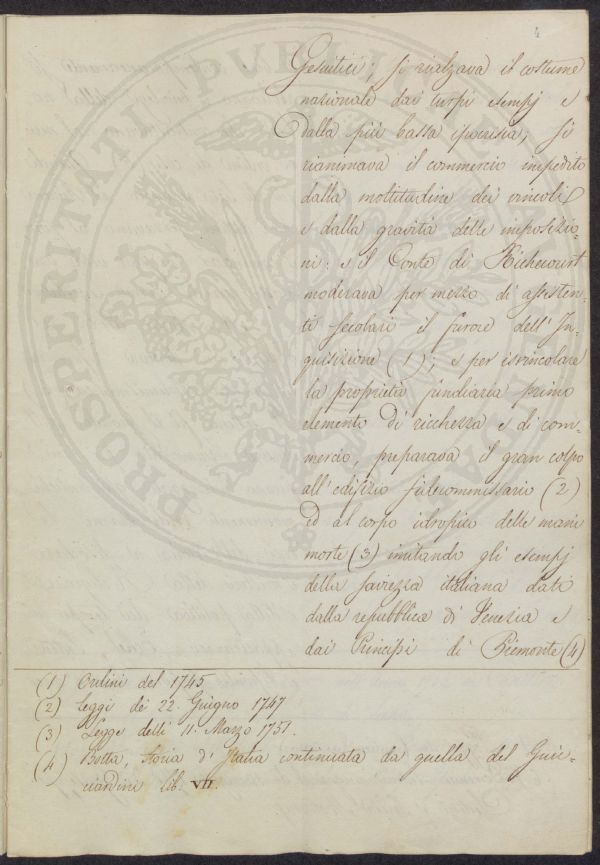 4
Gesuitici; si rialzava il costume
nazionale dai turpi esempj e
dalla più bassa ipocrisia; si
rianimava il commercio impedito
dalla moltitudine dei vincoli
e dalla gravità delle imposizio-
ni: e il Conte di Richecourt
moderava per mezzo di assisten-
ti secolari il furore dell'In-
quisizione (1); e per isvincolare
la proprietà fundiaria primo
elemento di ricchezza e di com-
mercio, preparava il gran colpo
all'edifizio fidecommissario (2)
ed al corpo idropico delle mani
morte (3) imitando gli esempj
della saviezza italiana dati
dalla repubblica di Venezia e
dai Principi di Piemonte (4)
(1) Ordini del 1745
(2) Leggi de 22. Giugno 1747
(3) Legge delli 11. Marzo 1751.
(4) Botta, Storia d'Italia continuata da quella del Guic-
ciardini lib. VII.
PROSPERITATI PUBLICAE